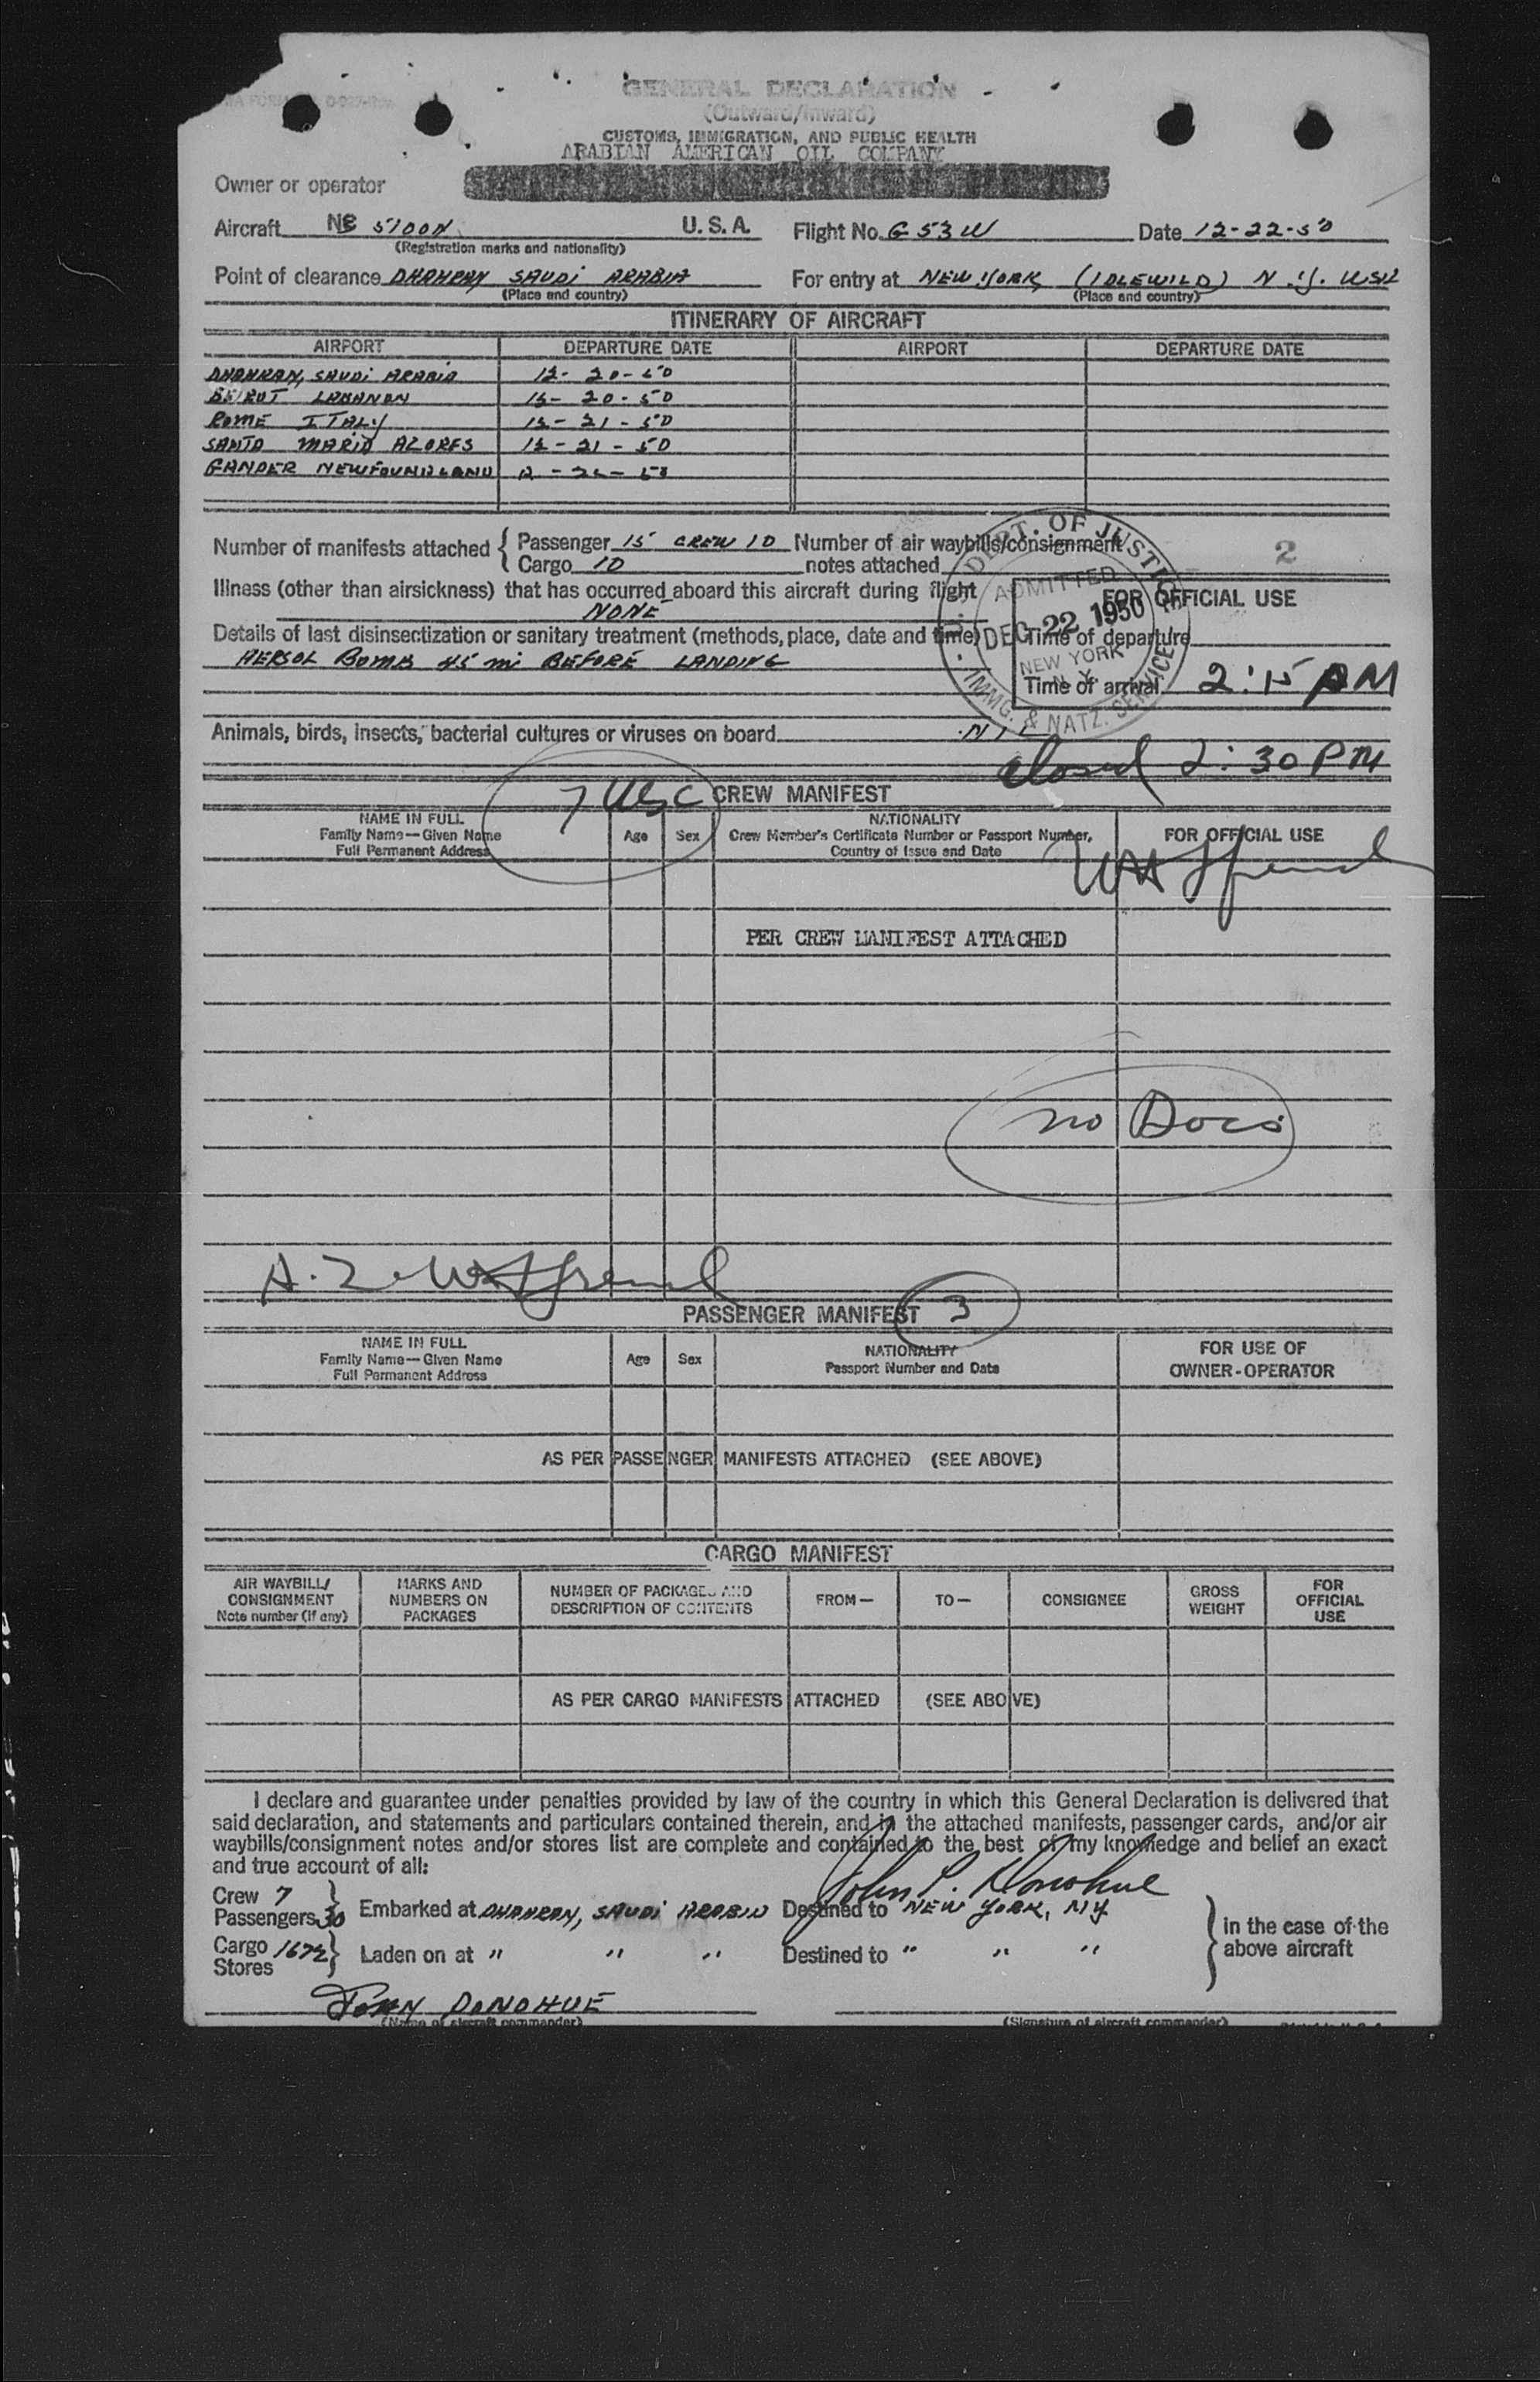 GENERAL DECLARATION
(Outward/Inward)
CUSTOMS, IMMIGRATION, AND PUBLIC HEALTH
ARABIAN AMERICAN OIL COMPANY
Owner or operator
Aircraft 5100N U.S.A. Flight No. G 53 W Date 12-22-50
(Registration marks and nationality)
Point of clearance DHAHRAN SAUDI ARABIA For entry at NEW YORK (IDLEWILD) N.Y. USA
(Place and country) (Place and country)
ITINERARY OF AIRCRAFT
AIRPORT DEPARTURE DATE AIRPORT DEPARTURE DATE
DHAHRAN, SAUDI ARABIA 12-20-50
BEIRUT LEBANON 12-20-50
ROME ITALY 12-21-50
SANTA MARIA AZORES 12-21-50
GANDER NEWFOUNDLAND
Number of manifests attached { Passenger 15 CREW 10 Number of air waybills/consignment 2
Cargo 10 notes attached
Illness (other than airsickness) that has occurred aboard this aircraft during flight
NONE
FOR OFFICIAL USE
DEPT. OF JUSTICE
ADMITTED
DEC 22 1950
NEW YORK
N. Y.
IMMG. & NATZ. SERVICE
Details of last disinsectization or sanitary treatment (methods, place, date and time) Time of departure
AERSOL BOMB 45 mi BEFORE LANDING
Time of arrival 2:15 PM
Animals, birds, insects, bacterial cultures or viruses on board NIL
closed 2:30 PM
7 USC CREW MANIFEST
NAME IN FULL
Family Name—Given Name
Full Permanent Address
Age Sex
NATIONALITY
Crew Member's Certificate Number or Passport Number,
Country of Issue and Date
FOR OFFICIAL USE
PER CREW MANIFEST ATTACHED
no Docs
PASSENGER MANIFEST 3
NAME IN FULL
Family Name—Given Name
Full Permanent Address
Age Sex
NATIONALITY
Passport Number and Date
FOR USE OF
OWNER-OPERATOR
AS PER PASSENGER MANIFESTS ATTACHED (SEE ABOVE)
CARGO MANIFEST
AIR WAYBILL/
CONSIGNMENT
Note number (if any)
MARKS AND
NUMBERS ON
PACKAGES
NUMBER OF PACKAGES AND
DESCRIPTION OF CONTENTS
FROM—
TO—
CONSIGNEE
GROSS
WEIGHT
FOR
OFFICIAL
USE
AS PER CARGO MANIFESTS ATTACHED (SEE ABOVE)
I declare and guarantee under penalties provided by law of the country in which this General Declaration is delivered that
said declaration, and statements and particulars contained therein, and in the attached manifests, passenger cards, and/or air
waybills/consignment notes and/or stores list are complete and contained to the best of my knowledge and belief an exact
and true account of all:
John P. Donohue
Crew 7
Passengers 30 } Embarked at DHAHRAN, SAUDI ARABIA Destined to NEW YORK, NY
Cargo 1672
Stores } Laden on at " " " Destined to " " "
in the case of the
above aircraft
JOHN DONOHUE
(Name of aircraft commander) (Signature of aircraft commander)